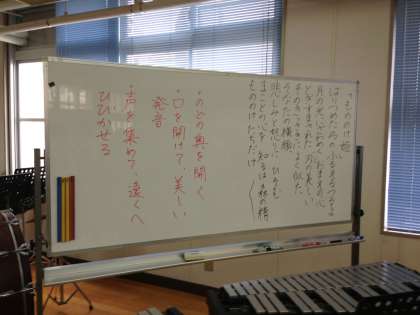 「もののけ姫」
はりつめた弓の ふるえるつるよ
月の光にざわめく おまえの心
とぎすまされた 刃の美しい
そのきっさきに よく似た
そなたの横顔
悲しみと怒りに ひそむ
まことの心を 知るは森の精
もののけたちだけ
・のどの奥を開く
・口を開けて、美しい
発音
・声を集めて、遠くへ
ひびかせる